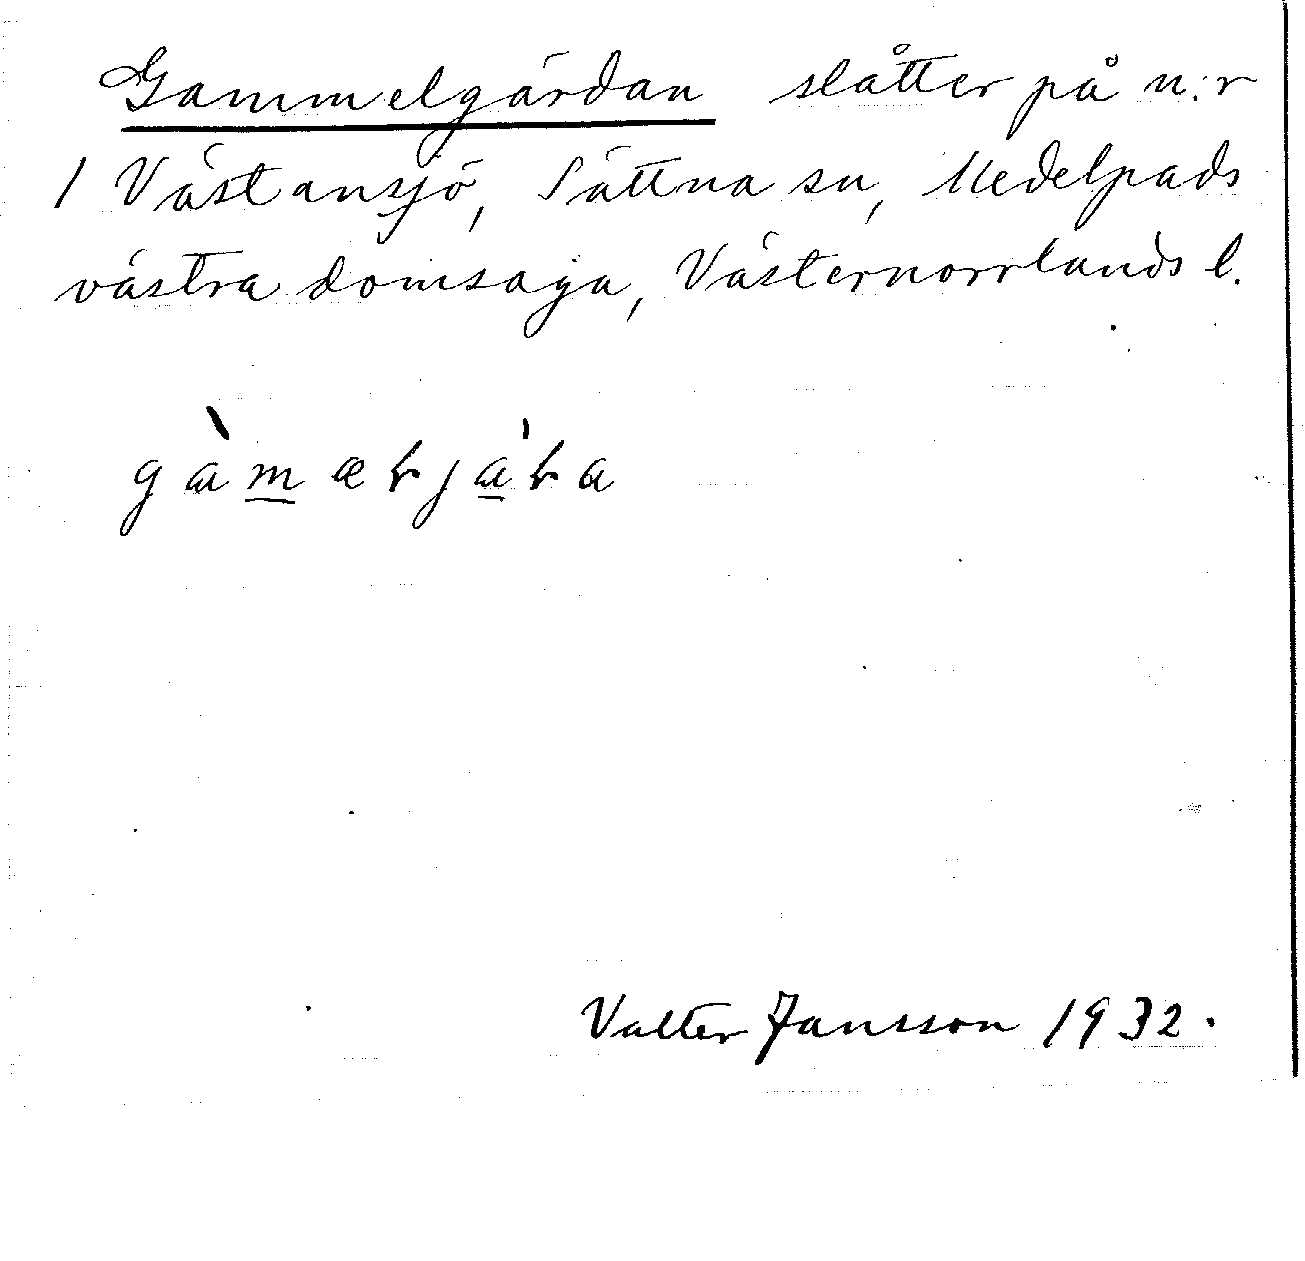 Gammelgärdan slåtter på n:r
1 Västansjö, Sättna sn, Medelpads
västra domsaga, Västernorrlands l.
Valter Jansson 1932.